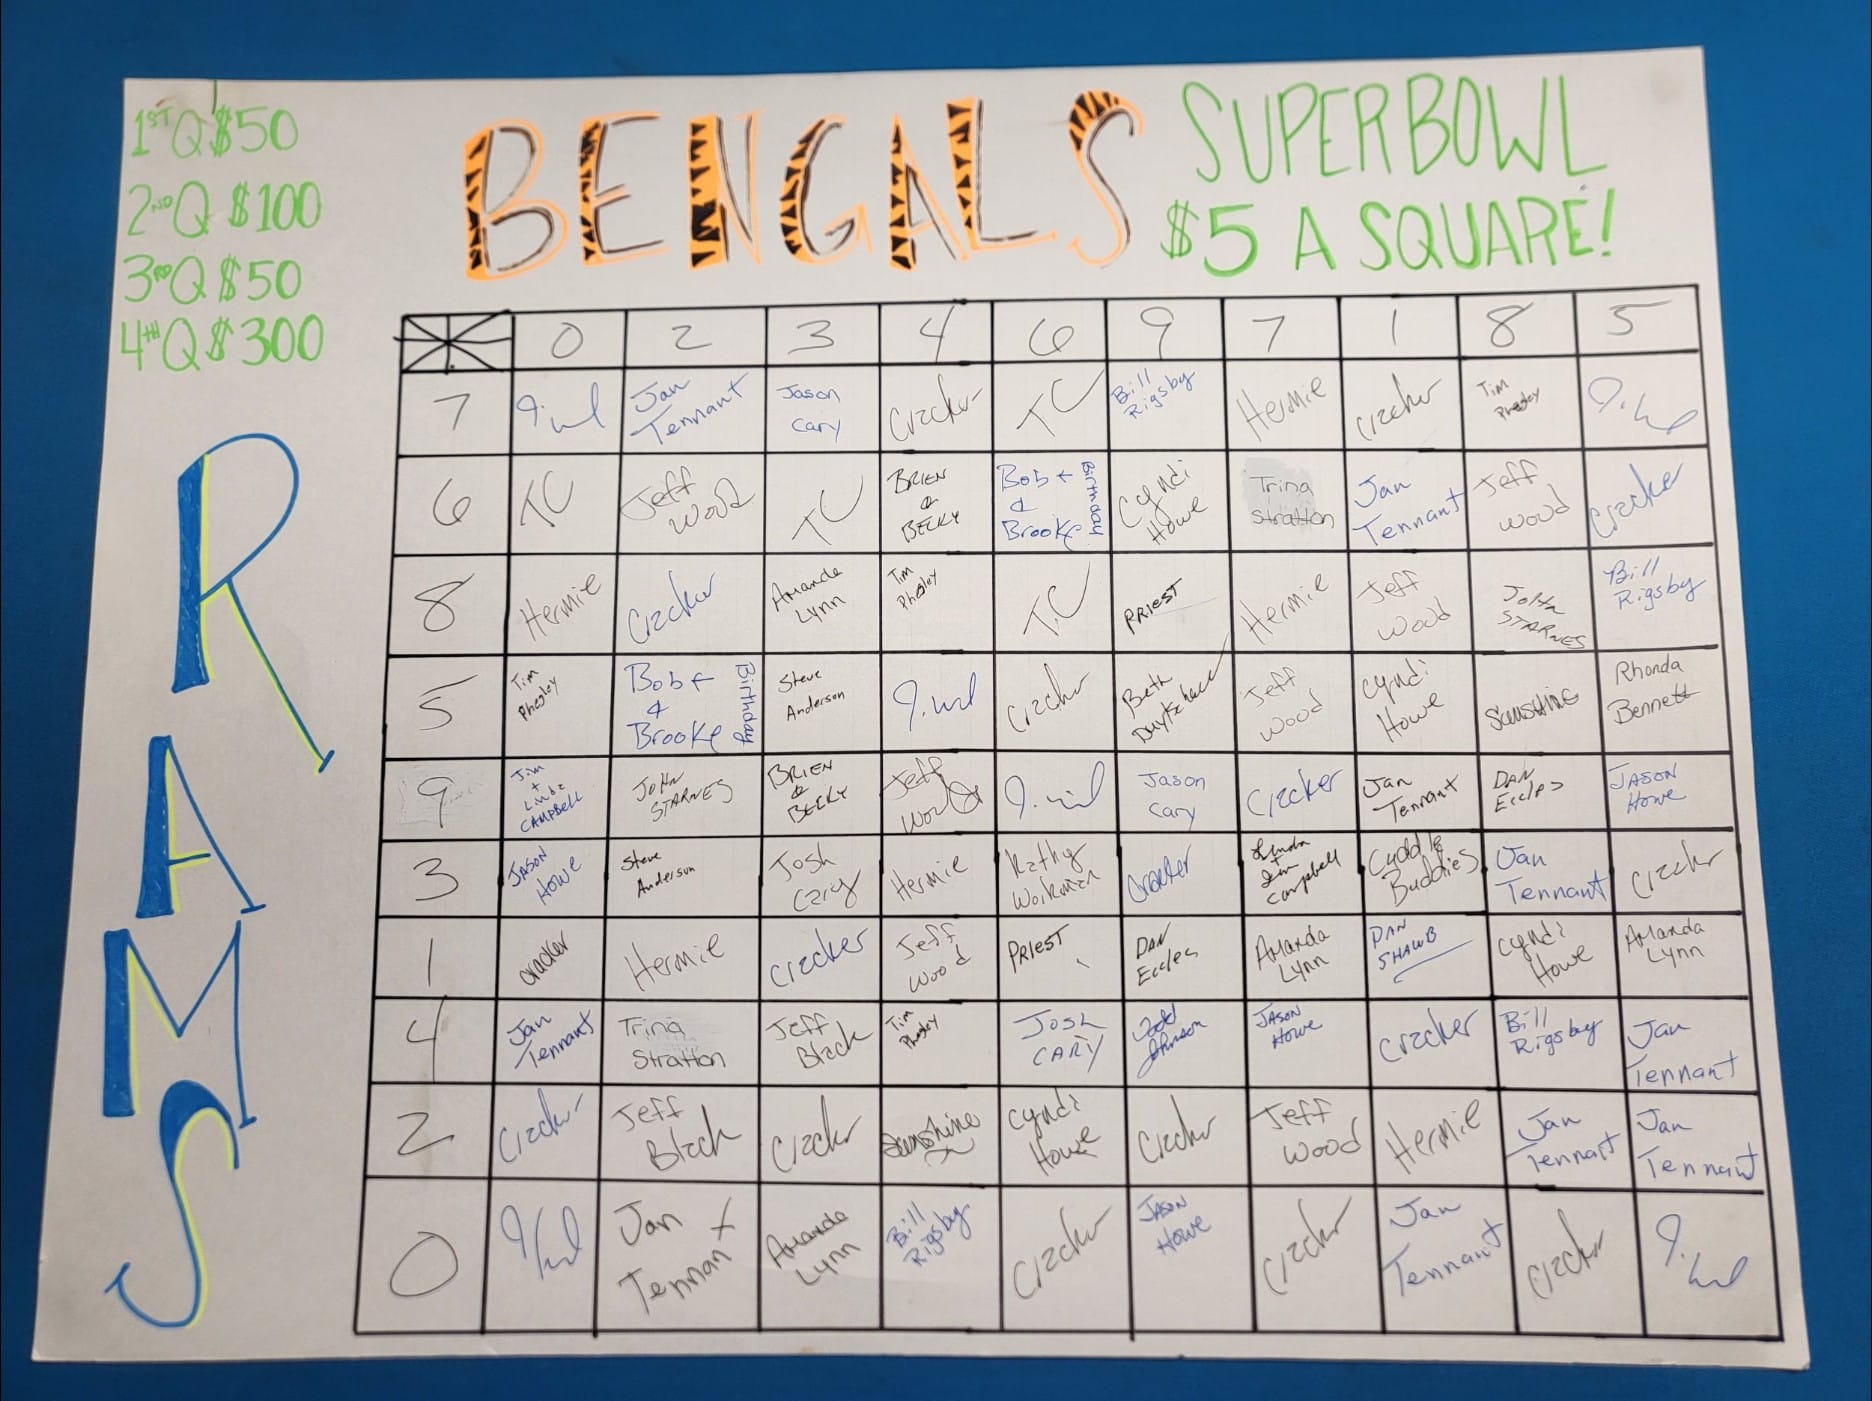 1ST Q $50
2ND Q $100
3RD Q $50
4TH Q $300
BENGALS
SUPERBOWL
$5 A SQUARE!
RAMS
0 2 3 4 6 9 7 1 8 5
7 Jan Tennant Jason Cary Cracker TC Bill Rigsby Hermie Cracker Tim
6 TC Jeff Wood TC BRIEN & BECKY Bob & Brooke Birthday Cyndi Howe Trina Stratton Jan Tennant Jeff Wood Cracker
8 Hermie Cracker Amanda Lynn Tim T.C PRIEST Hermie Jeff Wood JOHN STARNES Bill Rigsby
5 Tim Bob & Brooke Birthday Steve Anderson Cracker Beth Jeff Wood Cyndi Howe SUNSHINE Rhonda Bennett
9 Jim + Linda CAMPBELL JOHN STARNES BRIEN & BECKY Jeff Wood Jason Cary Cracker Jan Tennant DAN Eccles JASON Howe
3 JASON HOWE Steve Anderson Josh Cary Hermie Kathy Workman Cracker Linda + Jim Campbell Cuddle Buddies Jan Tennant Cracker
1 Cracker Hermie Cracker Jeff Wood PRIEST DAN Eccles Amanda Lynn DAN SHAWB Cyndi Howe Amanda Lynn
4 Jan Tennant Trina Stratton Jeff Black Tim Josh CARY Todd Johnson JASON Howe Cracker Bill Rigsby Jan Tennant
2 Cracker Jeff Black Cracker Sunshine Cyndi Howe Cracker Jeff Wood Hermie Jan Tennant Jan Tennant
0 Jan Tennant Amanda Lynn Bill Rigsby Cracker JASON Howe Cracker Jan Tennant Cracker